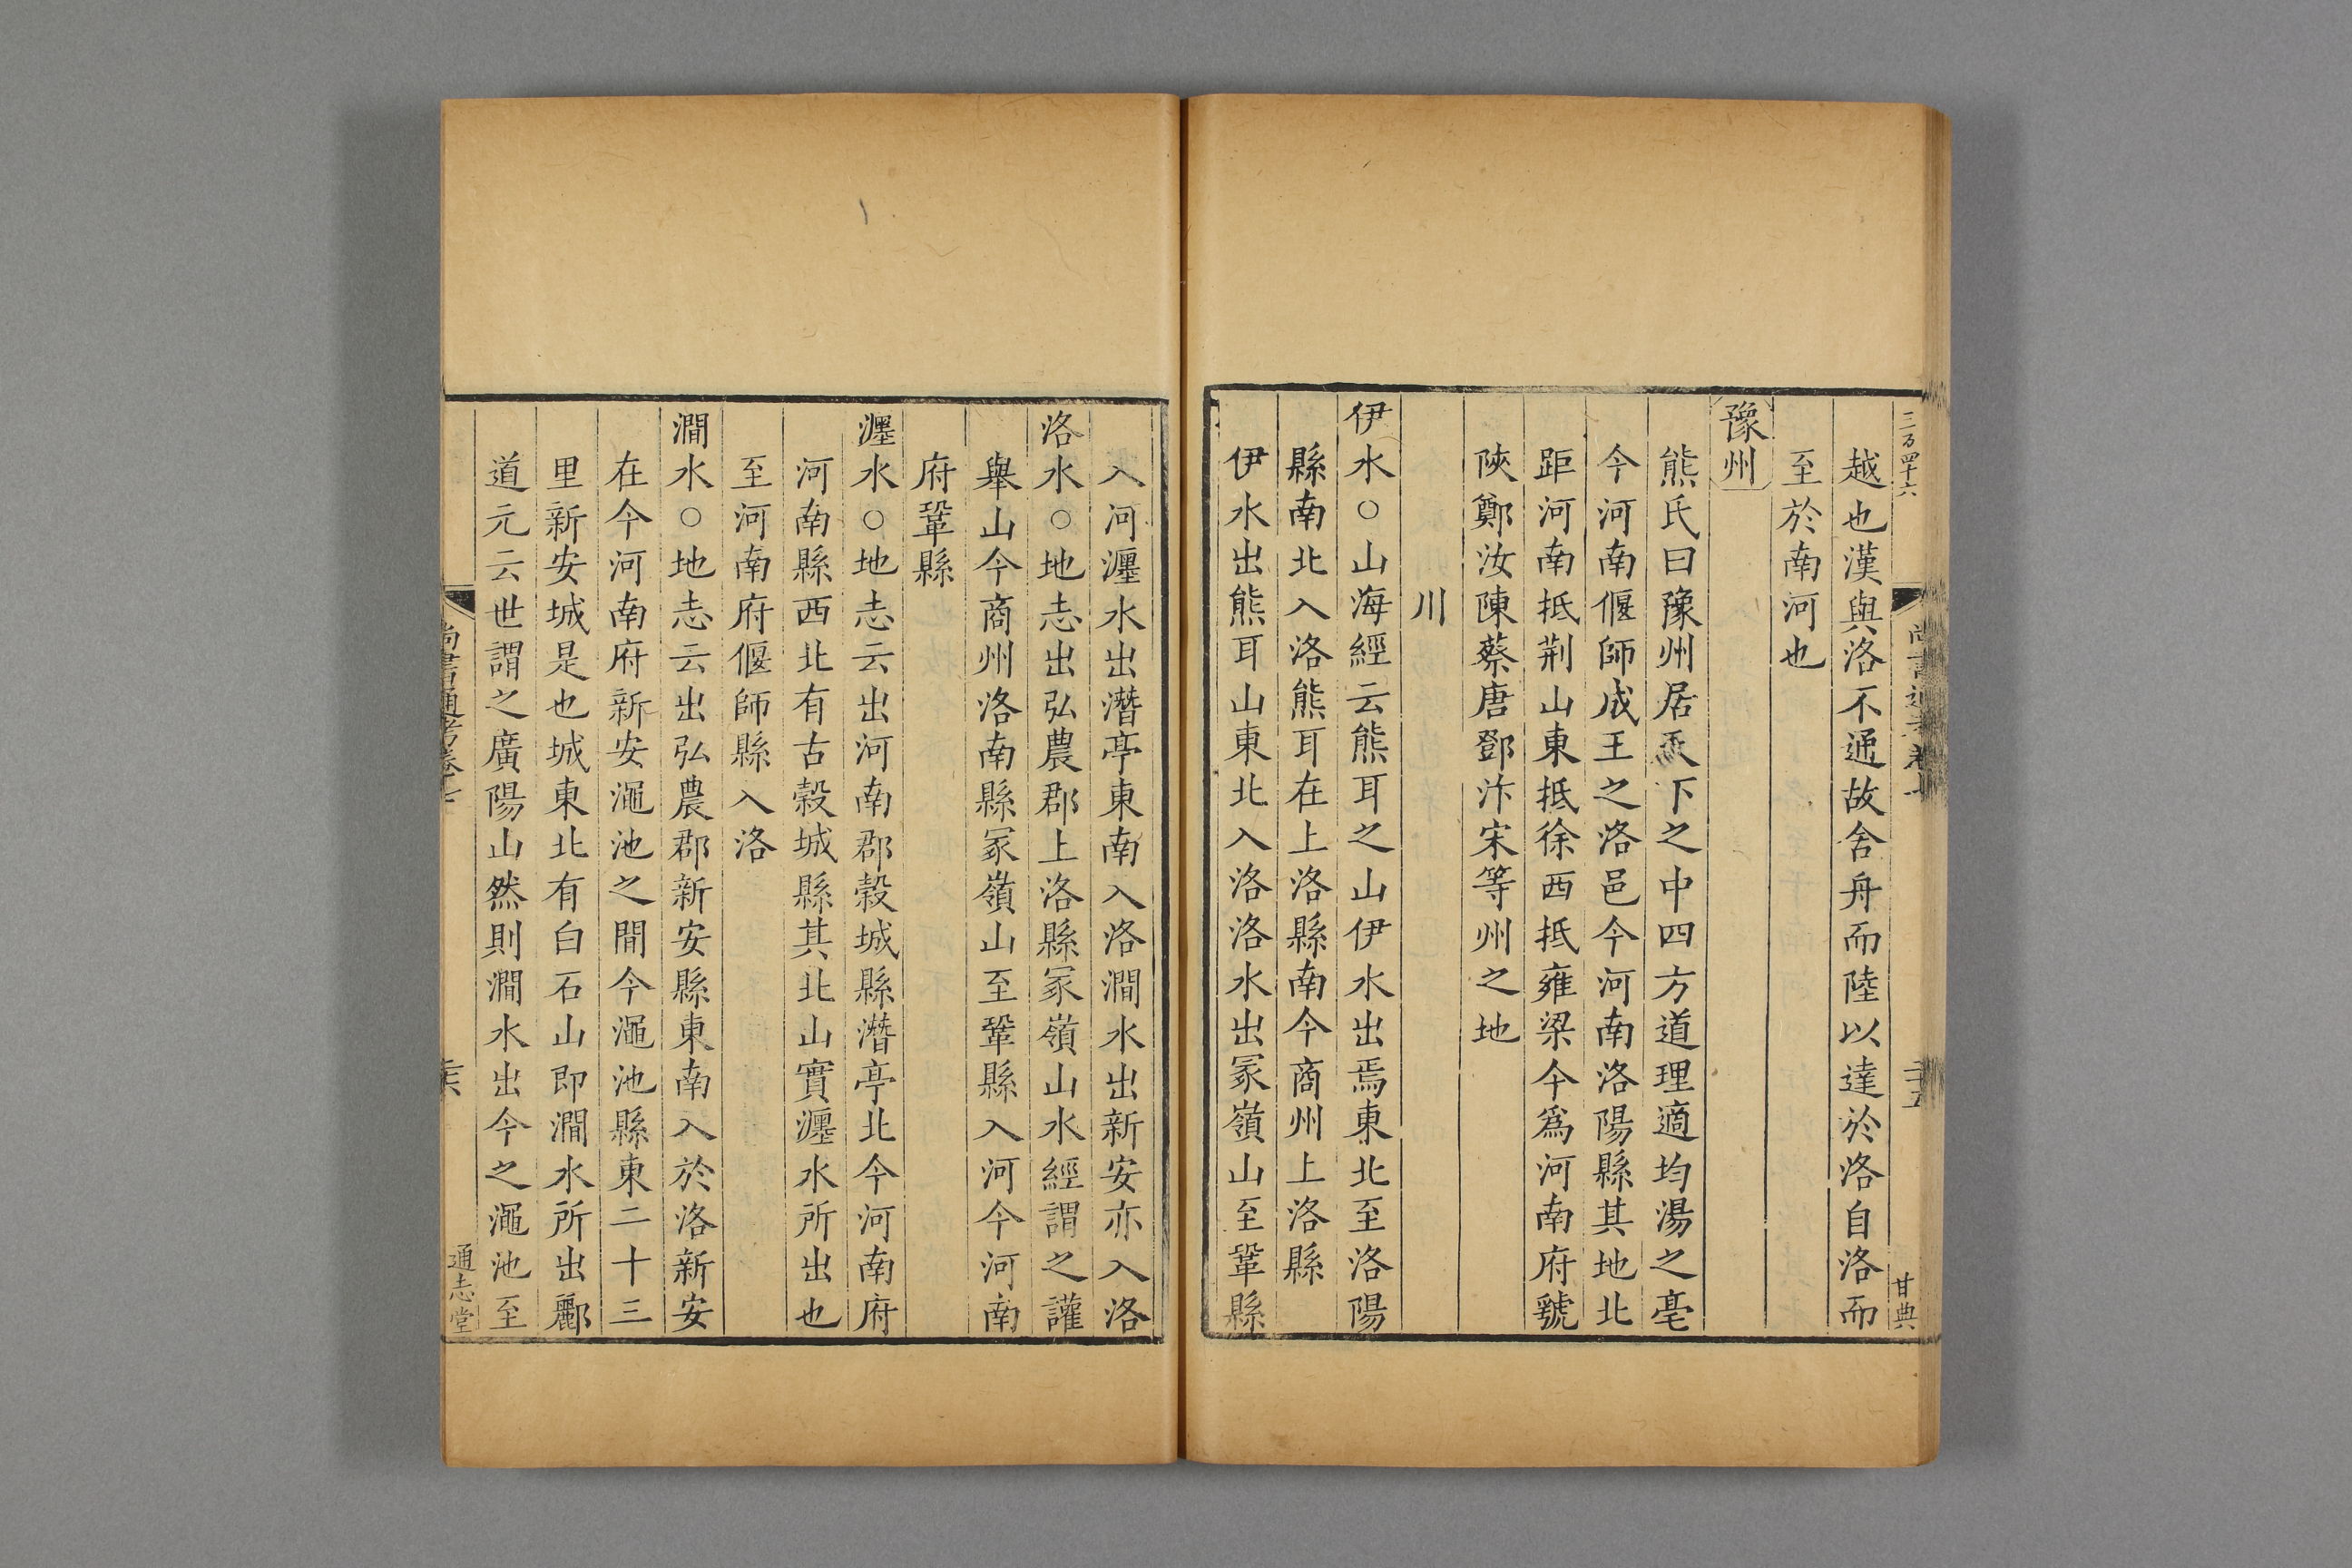 三百四十六
尚書通考卷七
二十五
甘典
越也漢與洛不通故舍舟而陸以達於洛自洛而
至於南河也
豫州
熊氏曰豫州居天下之中四方道理適均湯之亳
今河南偃師成王之洛邑今河南洛陽縣其地北
距河南抵荆山東抵徐西抵雍梁今爲河南府虢
陜鄭汝陳蔡唐鄧汴宋等州之地
川
伊水○山海經云熊耳之山伊水出焉東北至洛陽
縣南北入洛熊耳在上洛縣南今商州上洛縣
伊水出熊耳山東北入洛洛水出冡嶺山至鞏縣
入河瀍水出潛亭東南入洛澗水出新安亦入洛
洛水○地志出弘農郡上洛縣冡嶺山水經謂之讙
舉山今商州洛南縣冡嶺山至鞏縣入河今河南
府鞏縣
瀍水○地志云出河南郡穀城縣潛亭北今河南府
河南縣西北有古穀城縣其北山實瀍水所出也
至河南府偃師縣入洛
澗水○地志云出弘農郡新安縣東南入於洛新安
在今河南府新安澠池之間今澠池縣東二十三
里新安城是也城東北有白石山即澗水所出酈
道元云世謂之廣陽山然則澗水出今之澠池至
尚書通考卷七
通志堂